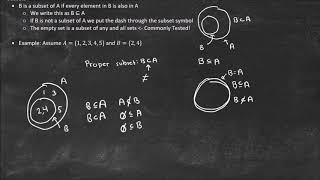 B is a subset of A if every element in B is also in A
We write this as B ⊆ A
If B is not a subset of A we put the dash through the subset symbol
The empty set is a subset of any and all sets <- Commonly Tested!
Example: Assume A = {1, 2, 3, 4, 5} and B = {2, 4}
B ⊂ A
B A
Proper subset: B ⊂ A
≠
A
1 3
2,4 5
B
B ⊆ A A ⊈ B
B ⊂ A ∅ ⊆ A
∅ ⊆ B
B = A
A
B ⊆ A
B ⊄ A